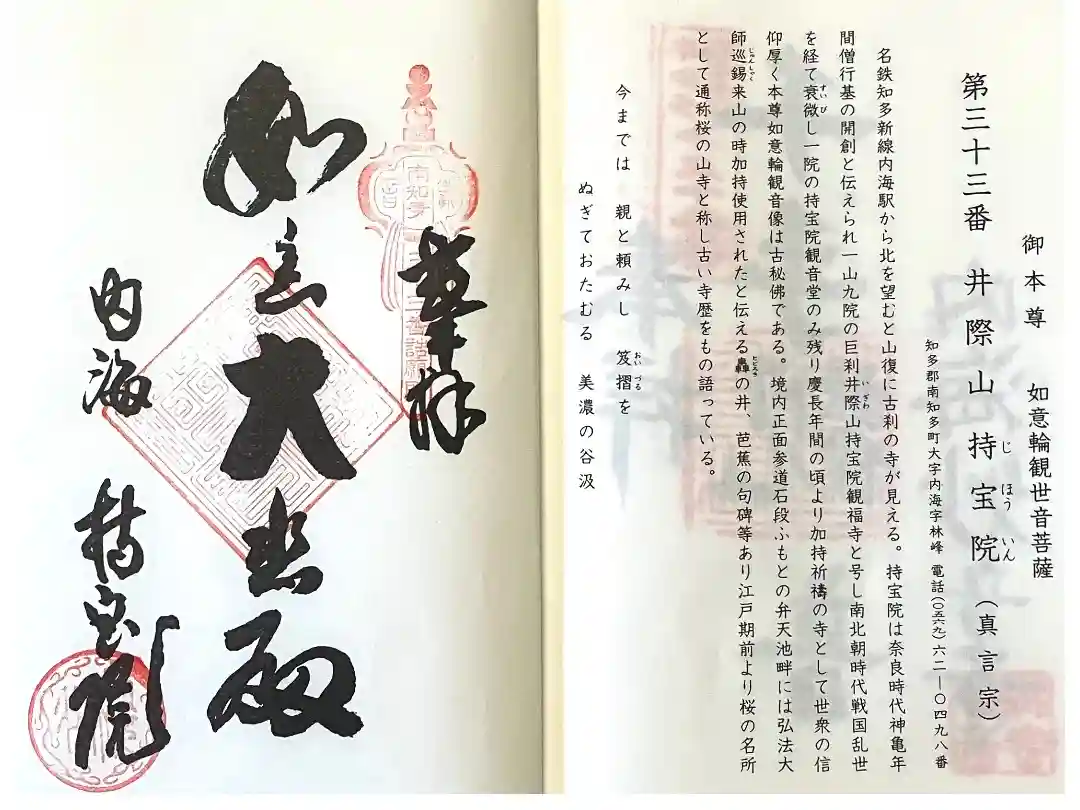 御本尊 如意輪観世音菩薩
第三十三番 井際山 持宝院(真言宗)
じほういん
知多郡南知多町大字内海字林峰 電話(〇五六九)六二―〇四九八番
名鉄知多新線内海駅から北を望むと山復に古刹の寺が見える。持宝院は奈良時代神亀年
間僧行基の開創と伝えられ一山九院の巨刹井際山持宝院観福寺と号し南北朝時代戦国乱世
いぎわ
を経て衰微し一院の持宝院観音堂のみ残り慶長年間の頃より加持祈禱の寺として世衆の信
すいび
仰厚く本尊如意輪観音像は古秘佛である。境内正面参道石段ふもとの弁天池畔には弘法大
師巡錫来山の時加持使用されたと伝える轟の井、芭蕉の句碑等あり江戸期前より桜の名所
じゅんしゃく
とどろき
として通称桜の山寺と称し古い寺歴をもの語っている。
今までは 親と頼みし 笈摺を
おいづる
ぬぎておたむる 美濃の谷汲
奉拝
如意大悲殿
内海
持宝院